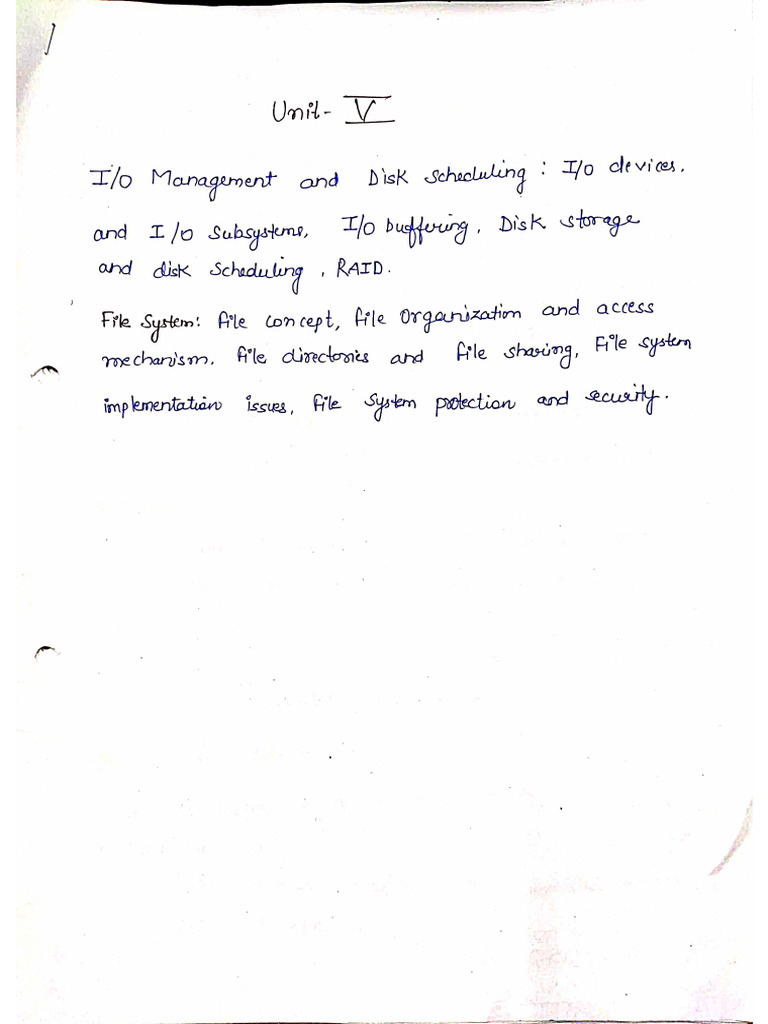 Unit- V
I/O Management and Disk Scheduling : I/O devices,
and I/O Subsystems, I/O buffering, Disk storage
and disk scheduling, RAID.
File System: file concept, file organization and access
mechanism, file directories and file sharing, File system
implementation issues, file system protection and security.